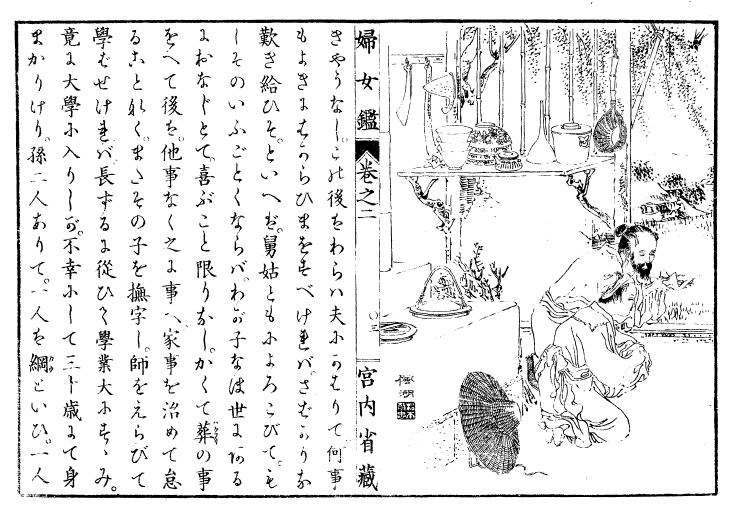 婦女鑑 巻之二 宮内省藏
きやうなし。この後はわらハ夫にかはりて何事
もよきにはからひまをすべければ。さばかりな
歎き給ひそ。といへば。舅姑ともによろこびて。も
しそのいふごとくならば。わが子なほ世にある
におなじとて。喜ぶこと限りなし。かくて葬の事
をへて後は。他事なく之に事へ。家事を治めて怠
ることなく。またその子を撫字し。師をえらびて
學ばせければ。長ずるに從ひて學業大にすゝみ。
竟に大學に入りしが。不幸にして三十歳にて身
まかりけり。孫二人ありて。一人を綱といひ。一人
楓湖